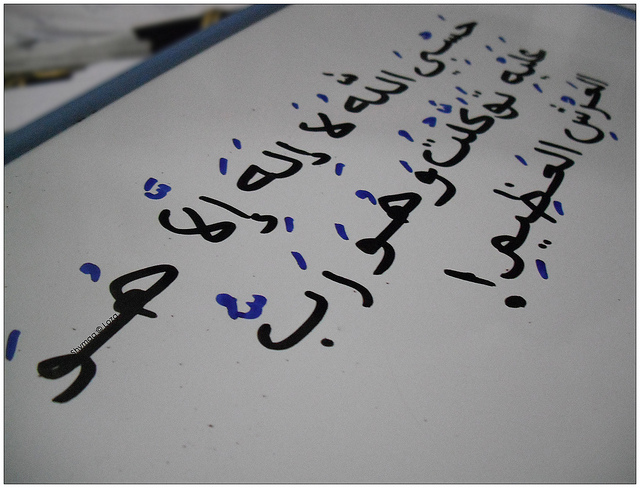 حَسْبِيَ اللهُ لَا إِلَهَ إِلَّا هُوَ
عَلَيْهِ تَوَكَّلْتُ وَهُوَ رَبُّ
العَرْشِ العَظِيمِ!